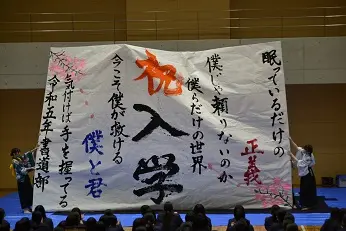 眠っているだけの
正義
僕しか頼りないのか
僕らだけの世界
祝入学
今こそ僕が救ける
僕と君
気付けば手を握ってる
令和五年書道部